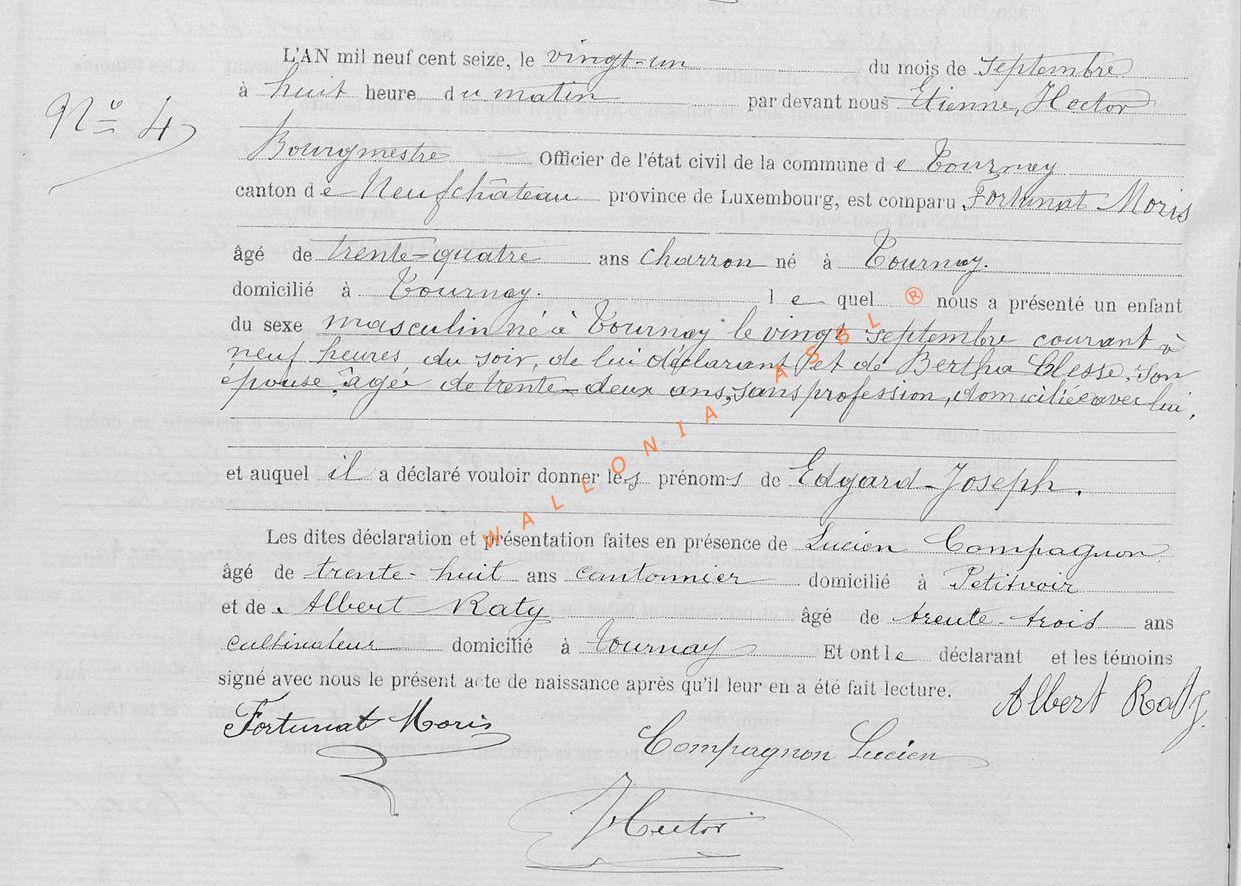 L'AN mil neuf cent seize, le vingt-un du mois de septembre
à huit heure du matin par devant nous Etienne, Hector
Nº 4
Bourgmestre Officier de l'état civil de la commune de Tournay
canton de Neufchâteau province de Luxembourg, est comparu Fortunat Moris
âgé de trente-quatre ans charron né à Tournay.
domicilié à Tournay. lequel nous a présenté un enfant
du sexe masculin né à Tournay le vingt septembre courant à
neuf heures du soir, de lui déclarant et de Bertha Clesse, son
épouse, âgée de trente-deux ans, sans profession, domiciliée avec lui,
et auquel il a déclaré vouloir donner les prénoms de Edgard-Joseph.
WALLONIA ASBL ®
Les dites déclaration et présentation faites en présence de Lucien Compagnon
âgé de trente-huit ans cantonnier domicilié à Petitvoir
et de Albert Raty âgé de trente-trois ans
cultivateur domicilié à Tournay Et ont le déclarant et les témoins
signé avec nous le présent acte de naissance après qu'il leur en a été fait lecture.
Albert Raty
Fortunat Moris
Compagnon Lucien
Hector